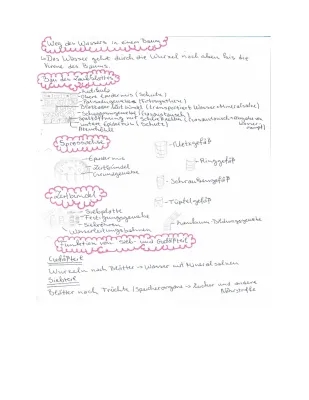 Weg des Wassers in einem Baum
↳ Das Wasser geht durch die Wurzel nach oben bis die
Krone des Baums.
Bau des Laubblattes
Kutikula
Obere Epidermis (Schutz)
Palisadengewebe (Fotosynthese)
Blattader/Leitbündel (transportiert Wasser+Mineralsalze)
Schwammgewebe (Gasaustausch)
Spaltöffnung mit Schließzelle
untere Epidermis (Schutz)
Atemhöhle
Sprossachse
Epidermis
Leitbündel
Netzgefäß
Ringgefäß
Schraubengefäß
Tüpfelgefäß
Leitbündel
Siebplatte
Festigungsgewebe
Siebröhren
Wasserleitungsbahnen
Kambium Bildungsgewebe
Funktion von Sieb- und Gefäßteil
Gefäßteil
Wurzeln nach Blätter → Wasser mit Mineralsalzen
Siebteil
Blätter nach Früchte/Speicherorgane → Zucker und andere
Nährstoffe